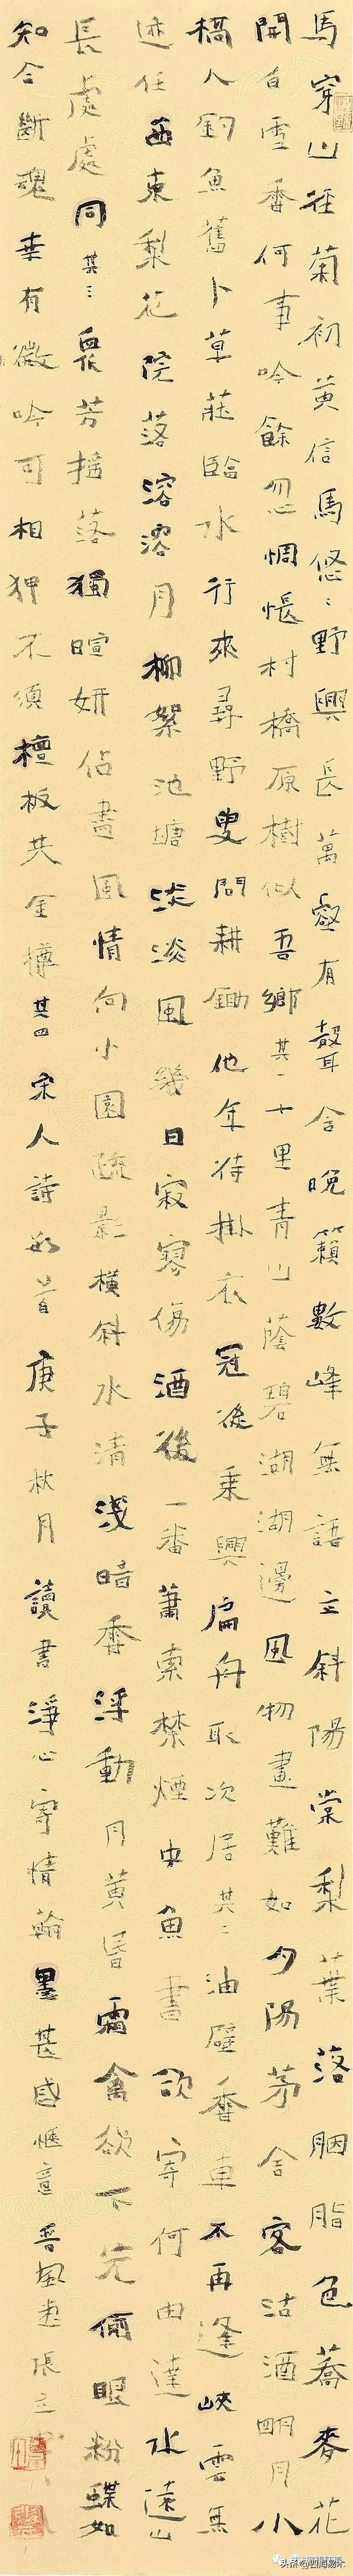 馬穿山徑菊初黃信馬悠〻野興長萬壑有聲含晚籟數峰無語立斜陽棠梨葉落胭脂色蕎麥花
開白雪香何事吟餘忽惆悵村橋原樹似吾鄉其一十里青山蔭碧湖湖邊風物畫難如夕陽茅舍客沽酒明月小
橋人釣魚舊卜草莊臨水行來尋野叟問耕鋤他年待掛衣冠後乘興扁舟取次居其二油壁香車不再逢峽雲無
迹任西東梨花院落溶溶月柳絮池塘淡淡風幾日寂寥傷酒後一番蕭索禁煙中魚書欲寄何由達水遠山
長處處同其三眾芳搖落獨暄妍佔盡風情向小園疏影橫斜水清淺暗香浮動月黃昏霜禽欲下先偷眼粉蝶如
知合斷魂幸有微吟可相狎不須檀板共金樽其四宋人詩首庚子秋月讀書淨心寄情翰墨甚感愜意晉風張立